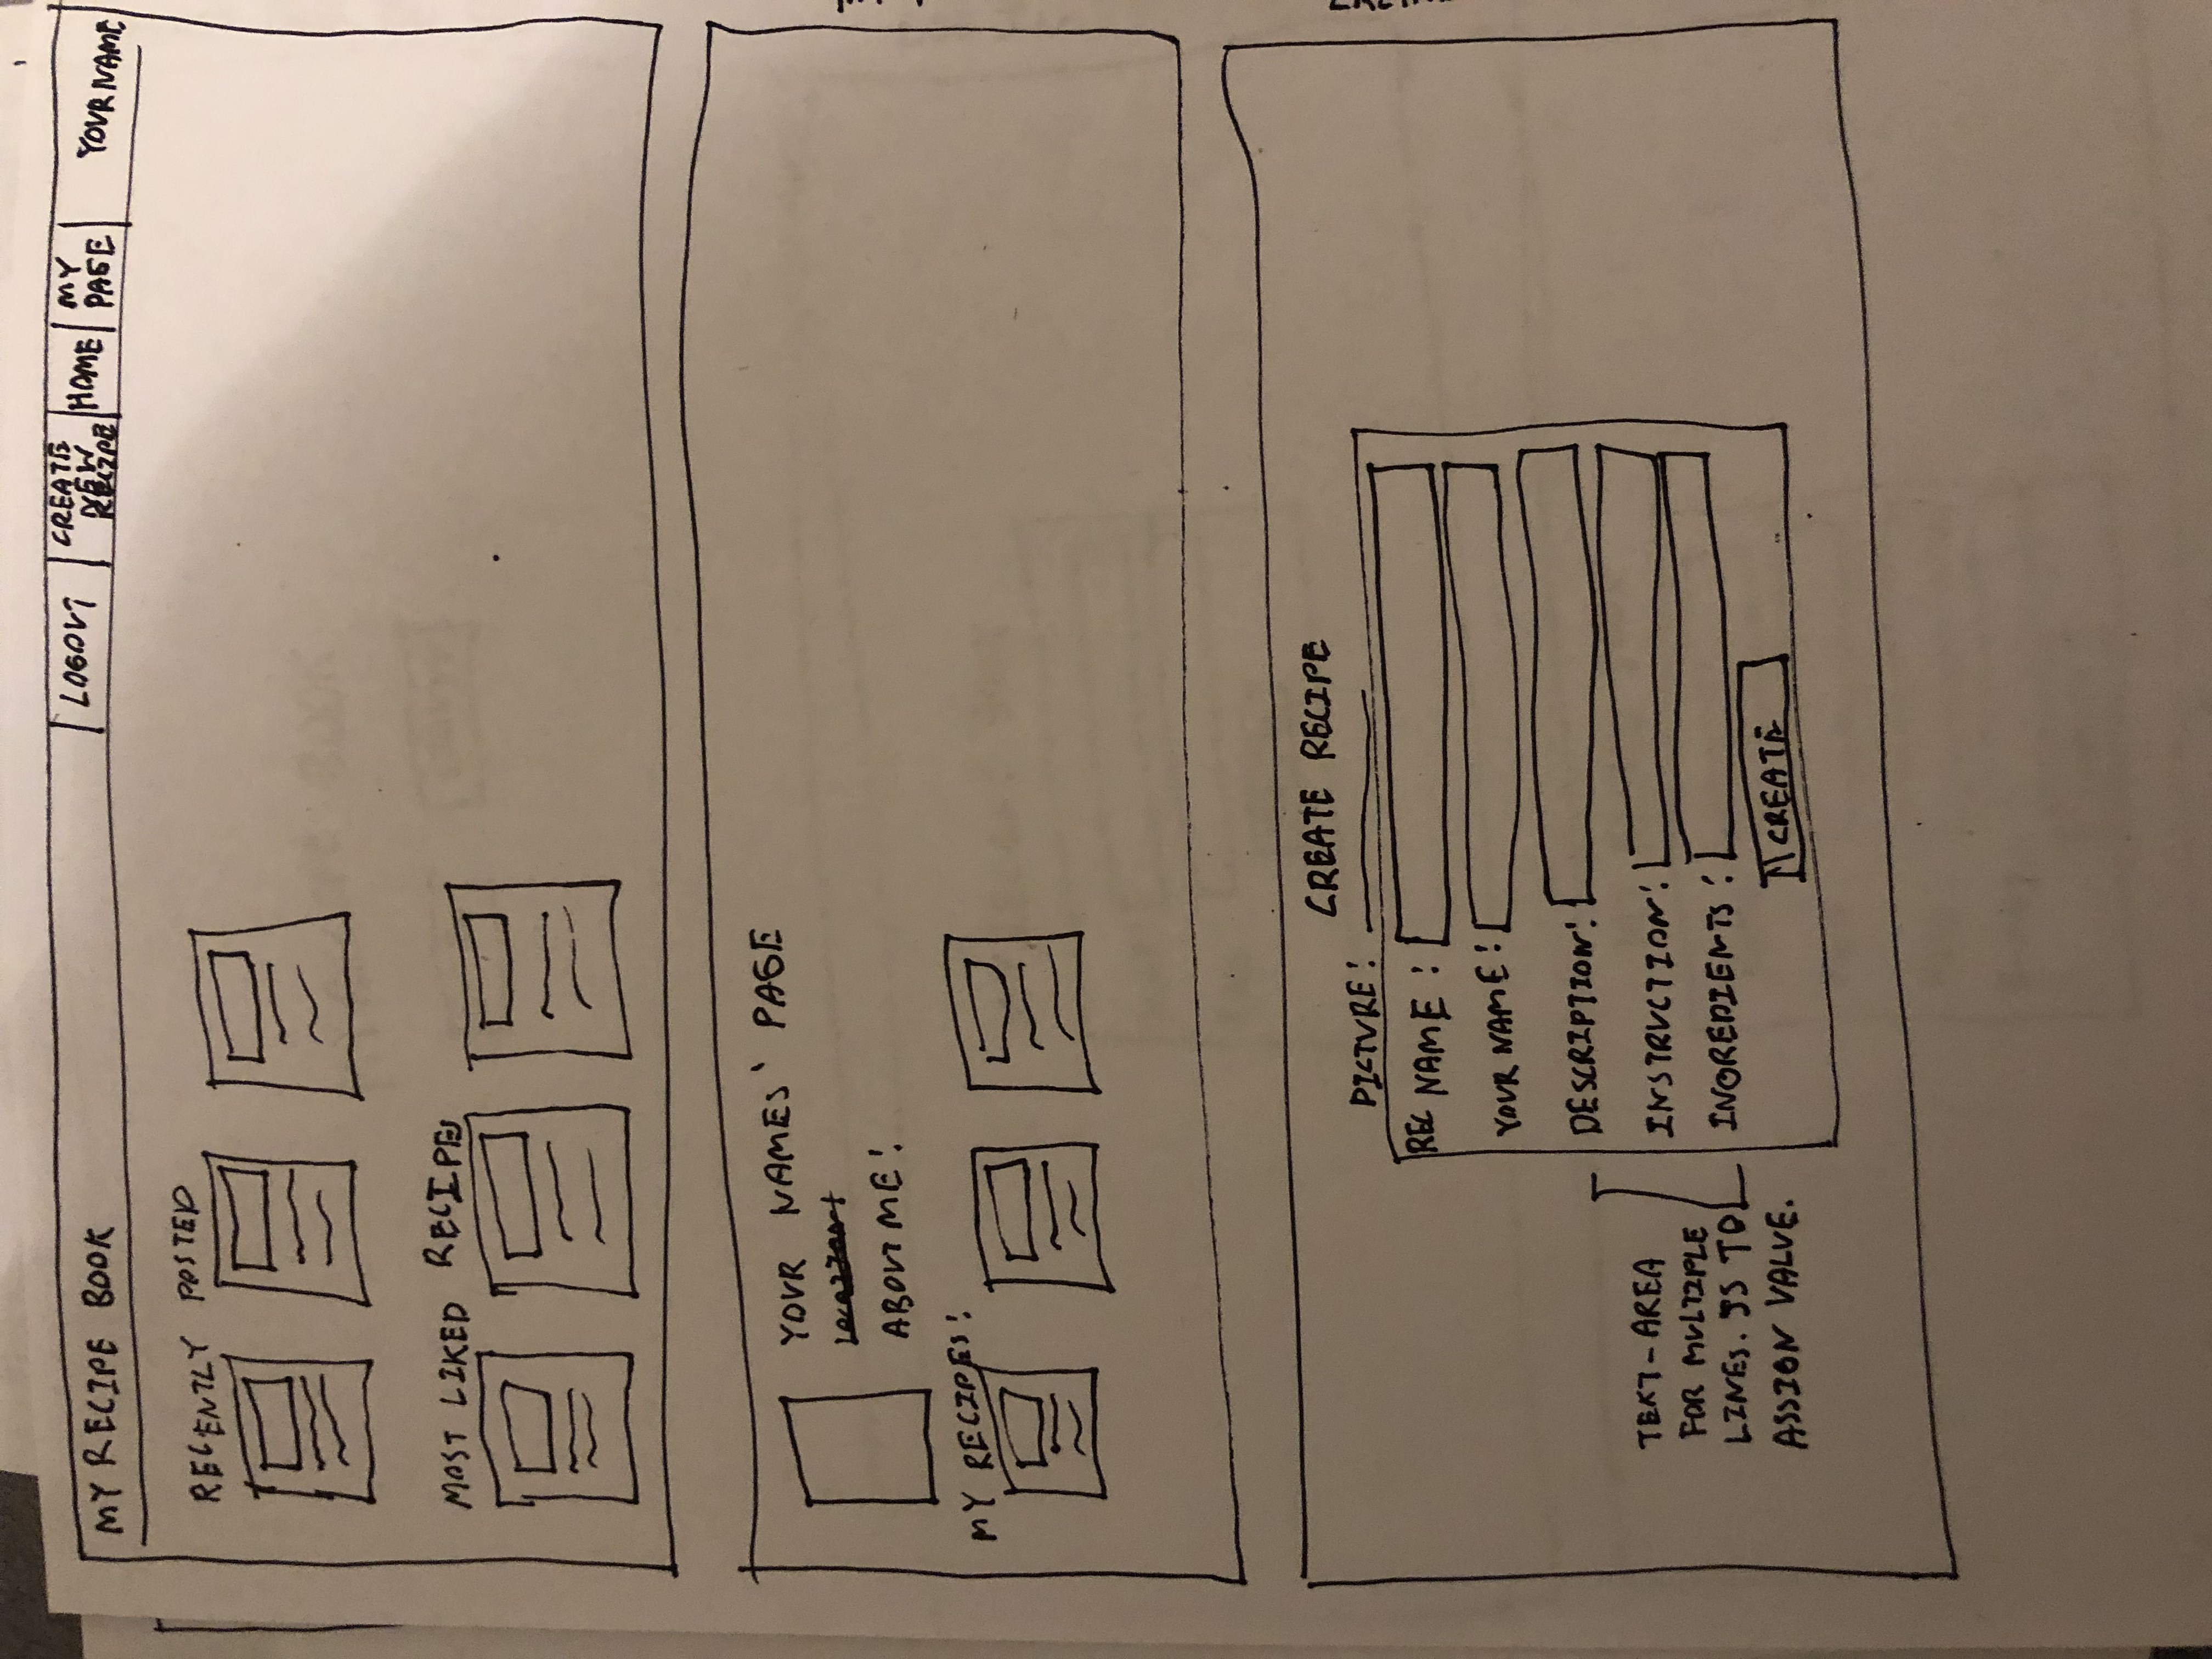 MY RECIPE BOOK
LOGOUT
CREATE
NEW
RECIPE
HOME
MY
PAGE
YOUR NAME
RECENTLY POSTED
MOST LIKED RECIPES
YOUR NAMES' PAGE
ABOUT ME:
MY RECIPES:
CREATE RECIPE
PICTURE:
REC NAME:
YOUR NAME:
DESCRIPTION:
INSTRUCTION:
INGREDIENTS:
CREATE
TEXT-AREA
FOR MULTIPLE
LINES. JS TO
ASSIGN VALUE.